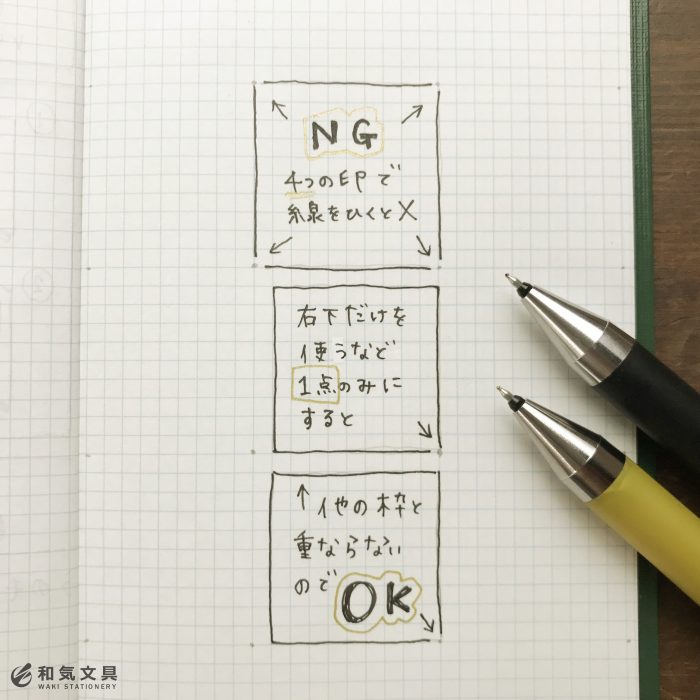 NG
4つの印で
線をひくと×
右下だけを
使うなど
1点のみに
すると
↑他の枠と
重ならない
ので OK
和気文具
WAKI STATIONERY